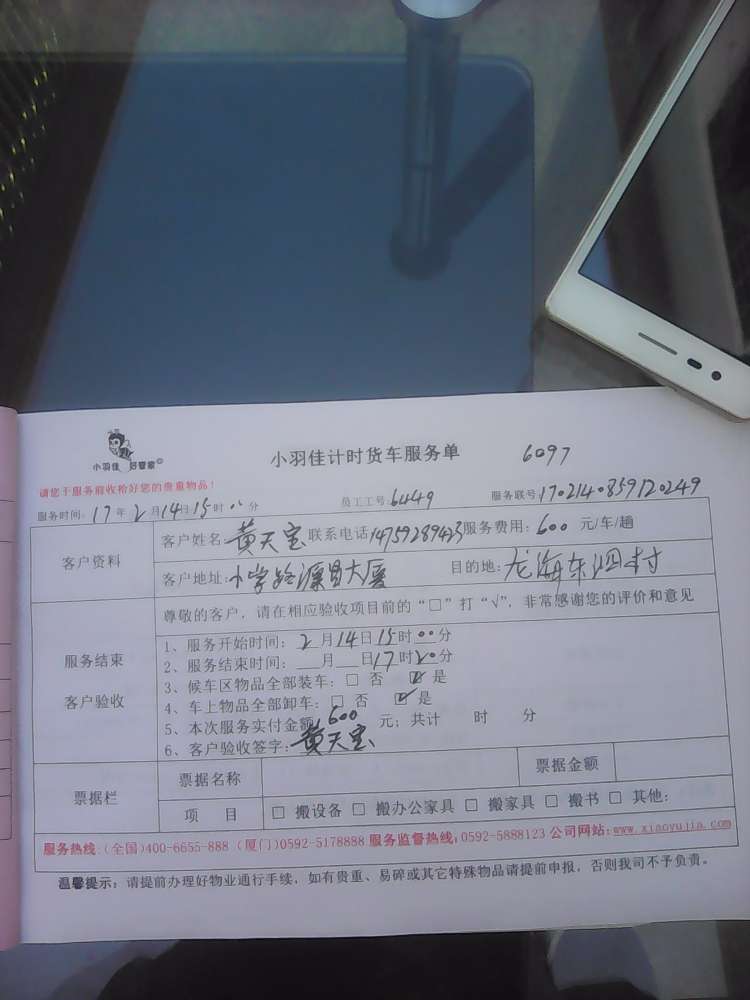 小羽佳 好管家
小羽佳计时货车服务单 6097
请您于服务前收拾好您的贵重物品！
服务时间：17年2月14日15时00分 员工工号：6449 服务联号1702140859120249
客户资料
客户姓名：黄天宝 联系电话14759289423 服务费用：600 元/车/趟
客户地址：小学路源昌大厦 目的地：龙海东泗村
服务结束
客户验收
尊敬的客户，请在相应验收项目前的“□”打“√”，非常感谢您的评价和意见
1、服务开始时间：2月14日15时00分
2、服务结束时间：__月__日17时20分
3、候车区物品全部装车：□ 否 ☑ 是
4、车上物品全部卸车：□ 否 ☑ 是
5、本次服务实付金额 600 元；共计 时 分
6、客户验收签字：黄天宝
票据栏
票据名称 票据金额
项 目 □ 搬设备 □ 搬办公家具 □ 搬家具 □ 搬书 □ 其他：
服务热线：(全国)400-6655-888 (厦门)0592-5178888 服务监督热线：0592-5888123 公司网站：www.xiaoyujia.com
温馨提示：请提前办理好物业通行手续，如有贵重、易碎或其它特殊物品请提前申报，否则我司不予负责。